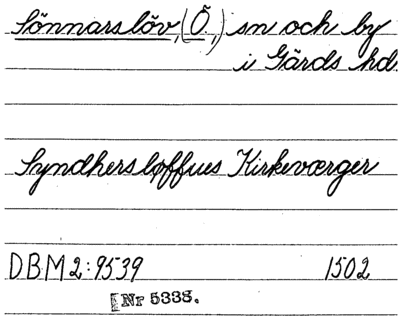 Sönnarslöv, (Ö.,) sn och by
i Gärds hd.
Syndhersløffues Kirkeværger
DBM 2:9539 1502
[Nr 5338.